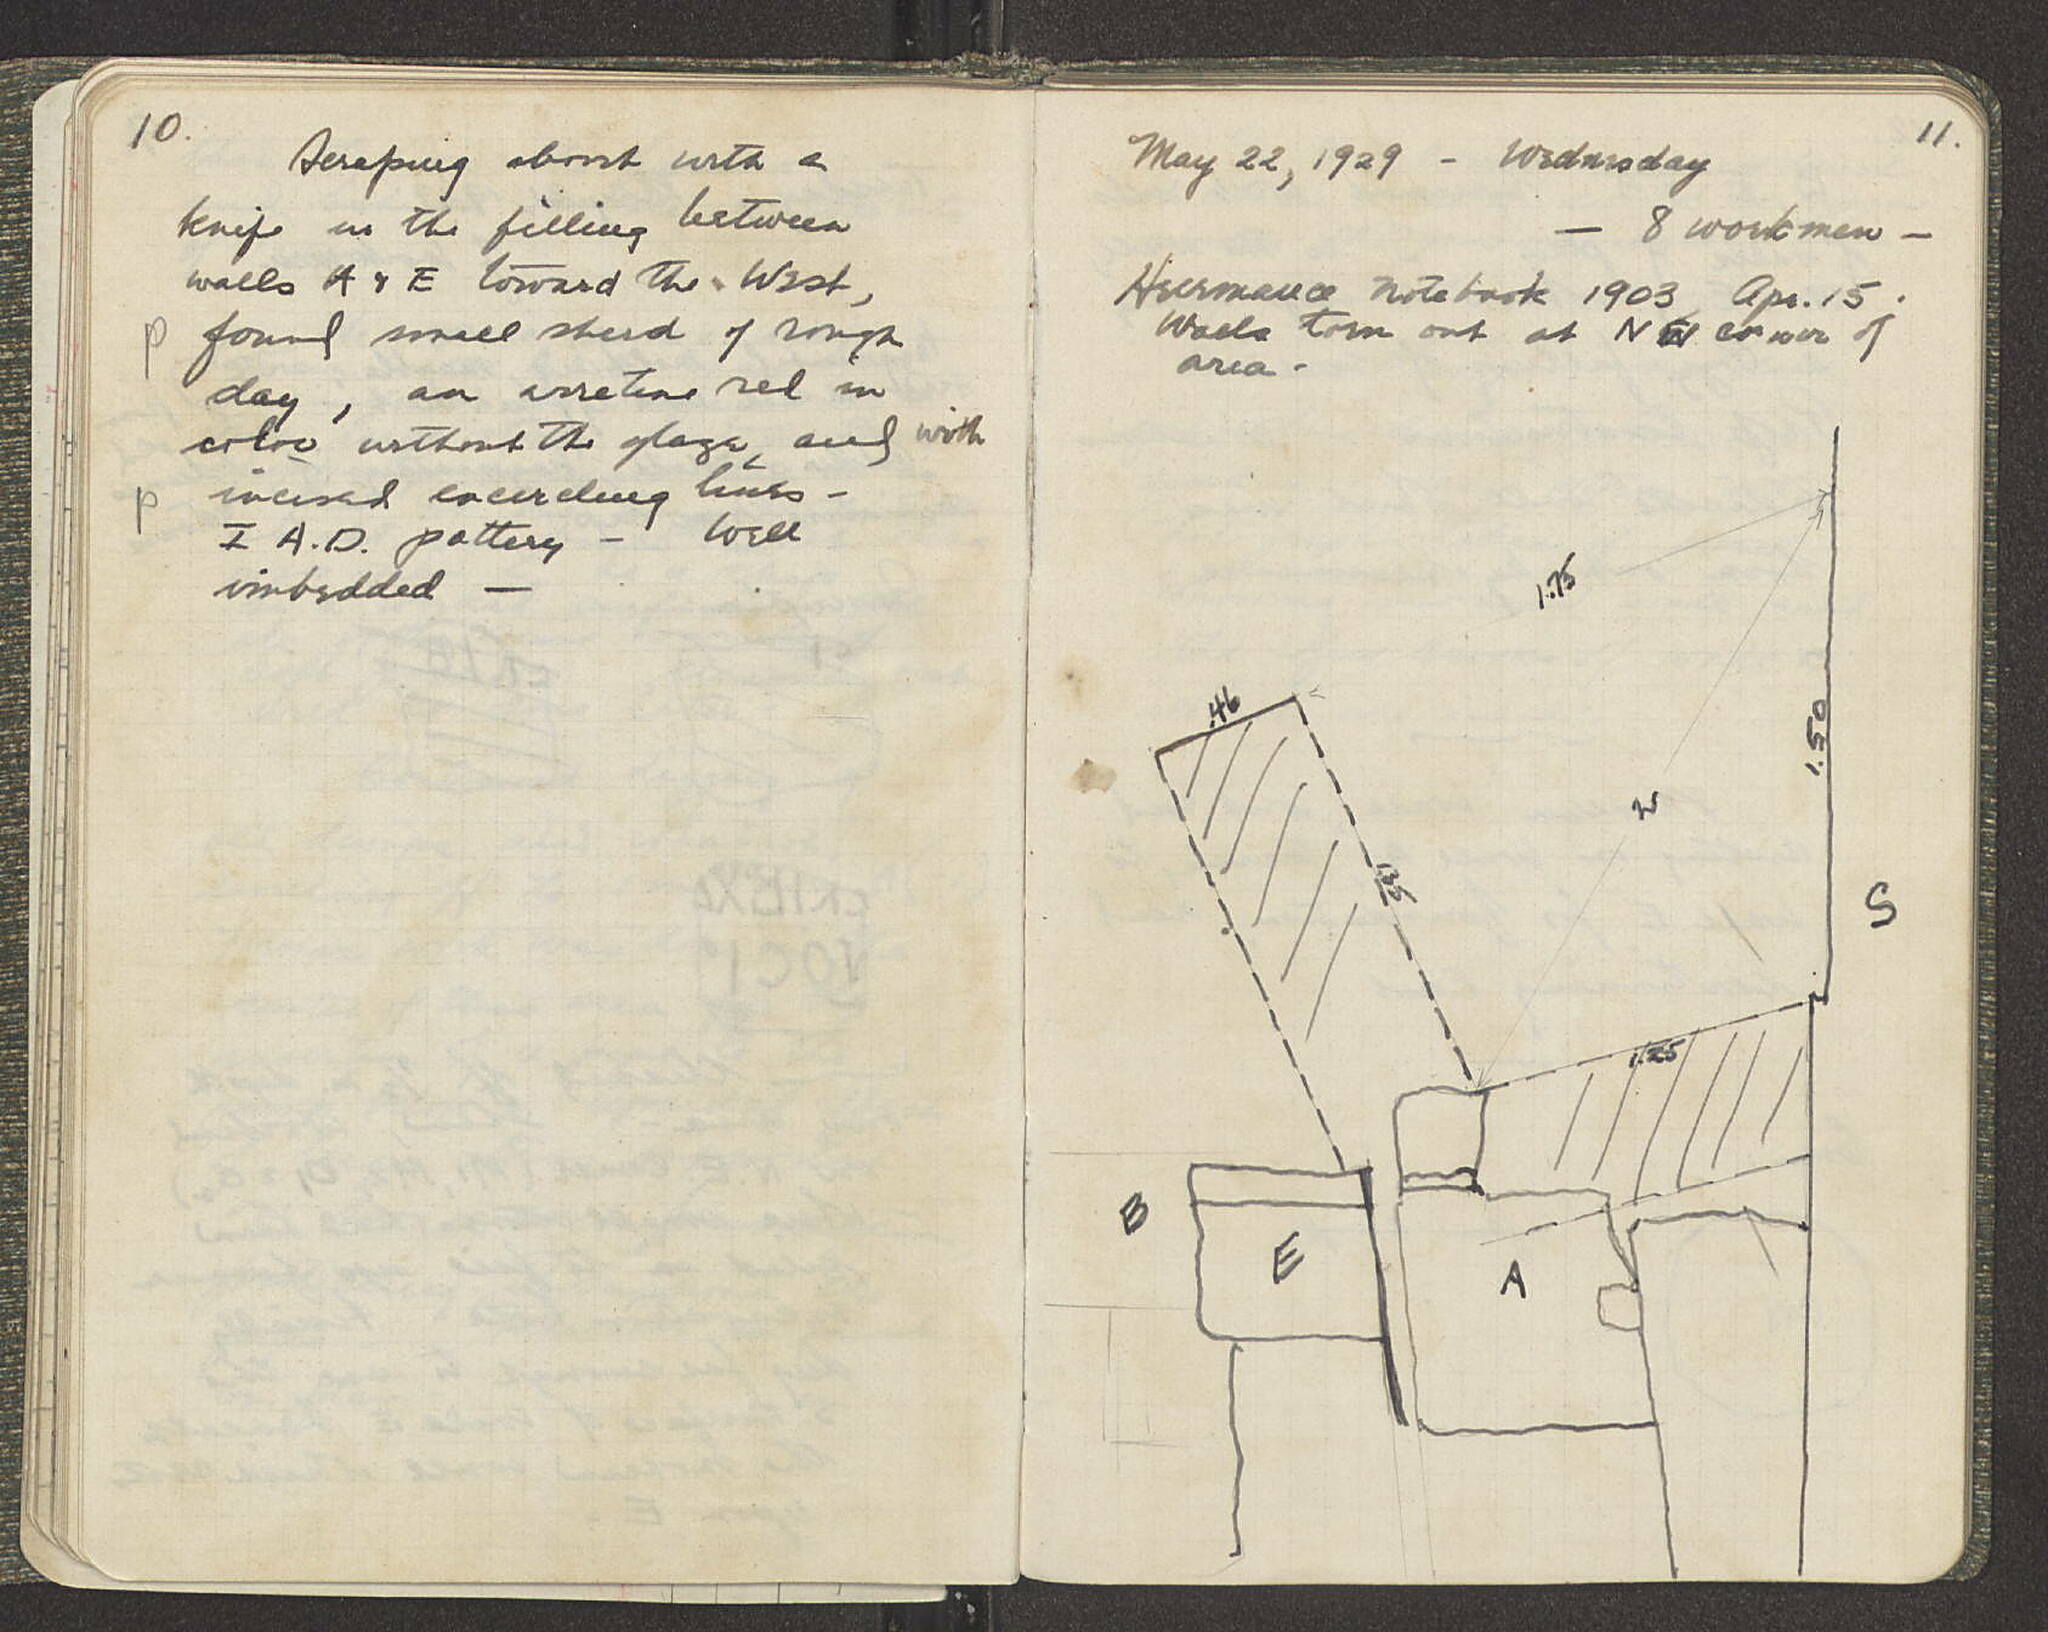 10.
Scraping about with a
knife in the filling between
walls A & E toward the West,
p found small sherd of rough
clay, an arretine red in
color without the glaze, and with
p incised encircling lines -
I A.D. pottery - Well
imbedded —
11.
May 22, 1929 - Wednesday
— 8 workmen —
Heermance notebook 1903 Apr. 15.
Walls torn out at NW corner of
area -
1.75
.46
1.50
2
1.35
S
1.25
B
E
A